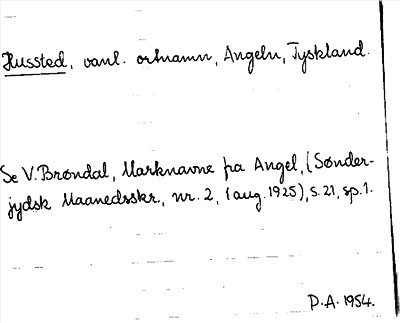 Hussted, vanl. ortnamn, Angeln, Tyskland.
Se V. Brøndal, Marknavne fra Angel, (Sønder-
jydsk Maanedsskr., nr. 2, (aug. 1925), s. 21, sp. 1.
P.A. 1954.